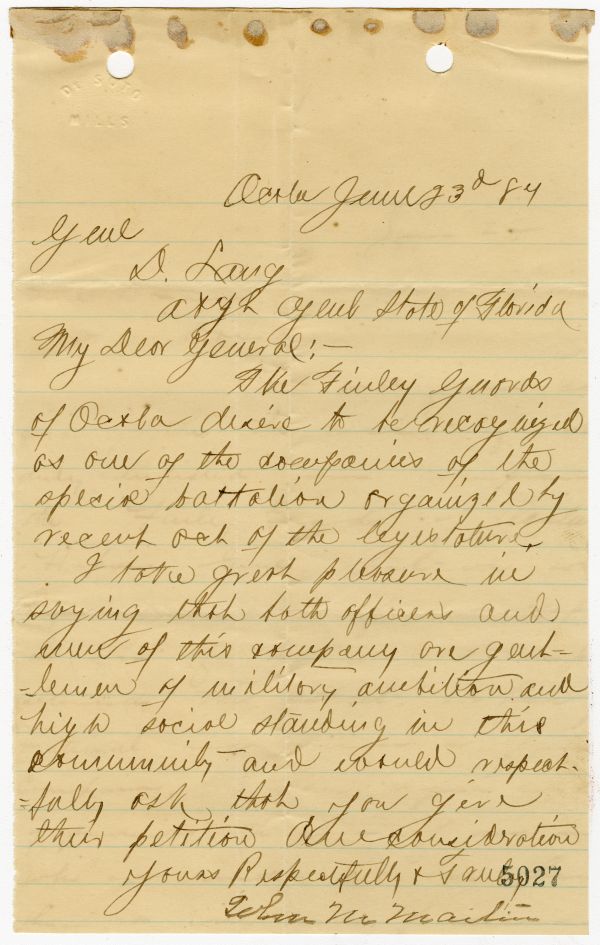 DE SOTO
MILLS
Ocala June 23d 84
Genl
D. Lang
Adgt Genl State of Florida
My Dear General:—
The Finley Guards
of Ocala desire to be recognized
as one of the companies of the
special battalion organized by
recent act of the legislature.
I take great pleasure in
saying that both officers and
men of this company are gent-
-lemen of military ambition and
high social standing in this
community and would respect-
-fully ask that you give
their petition due consideration
Yours Respectfully & Truly
5027
M Martin